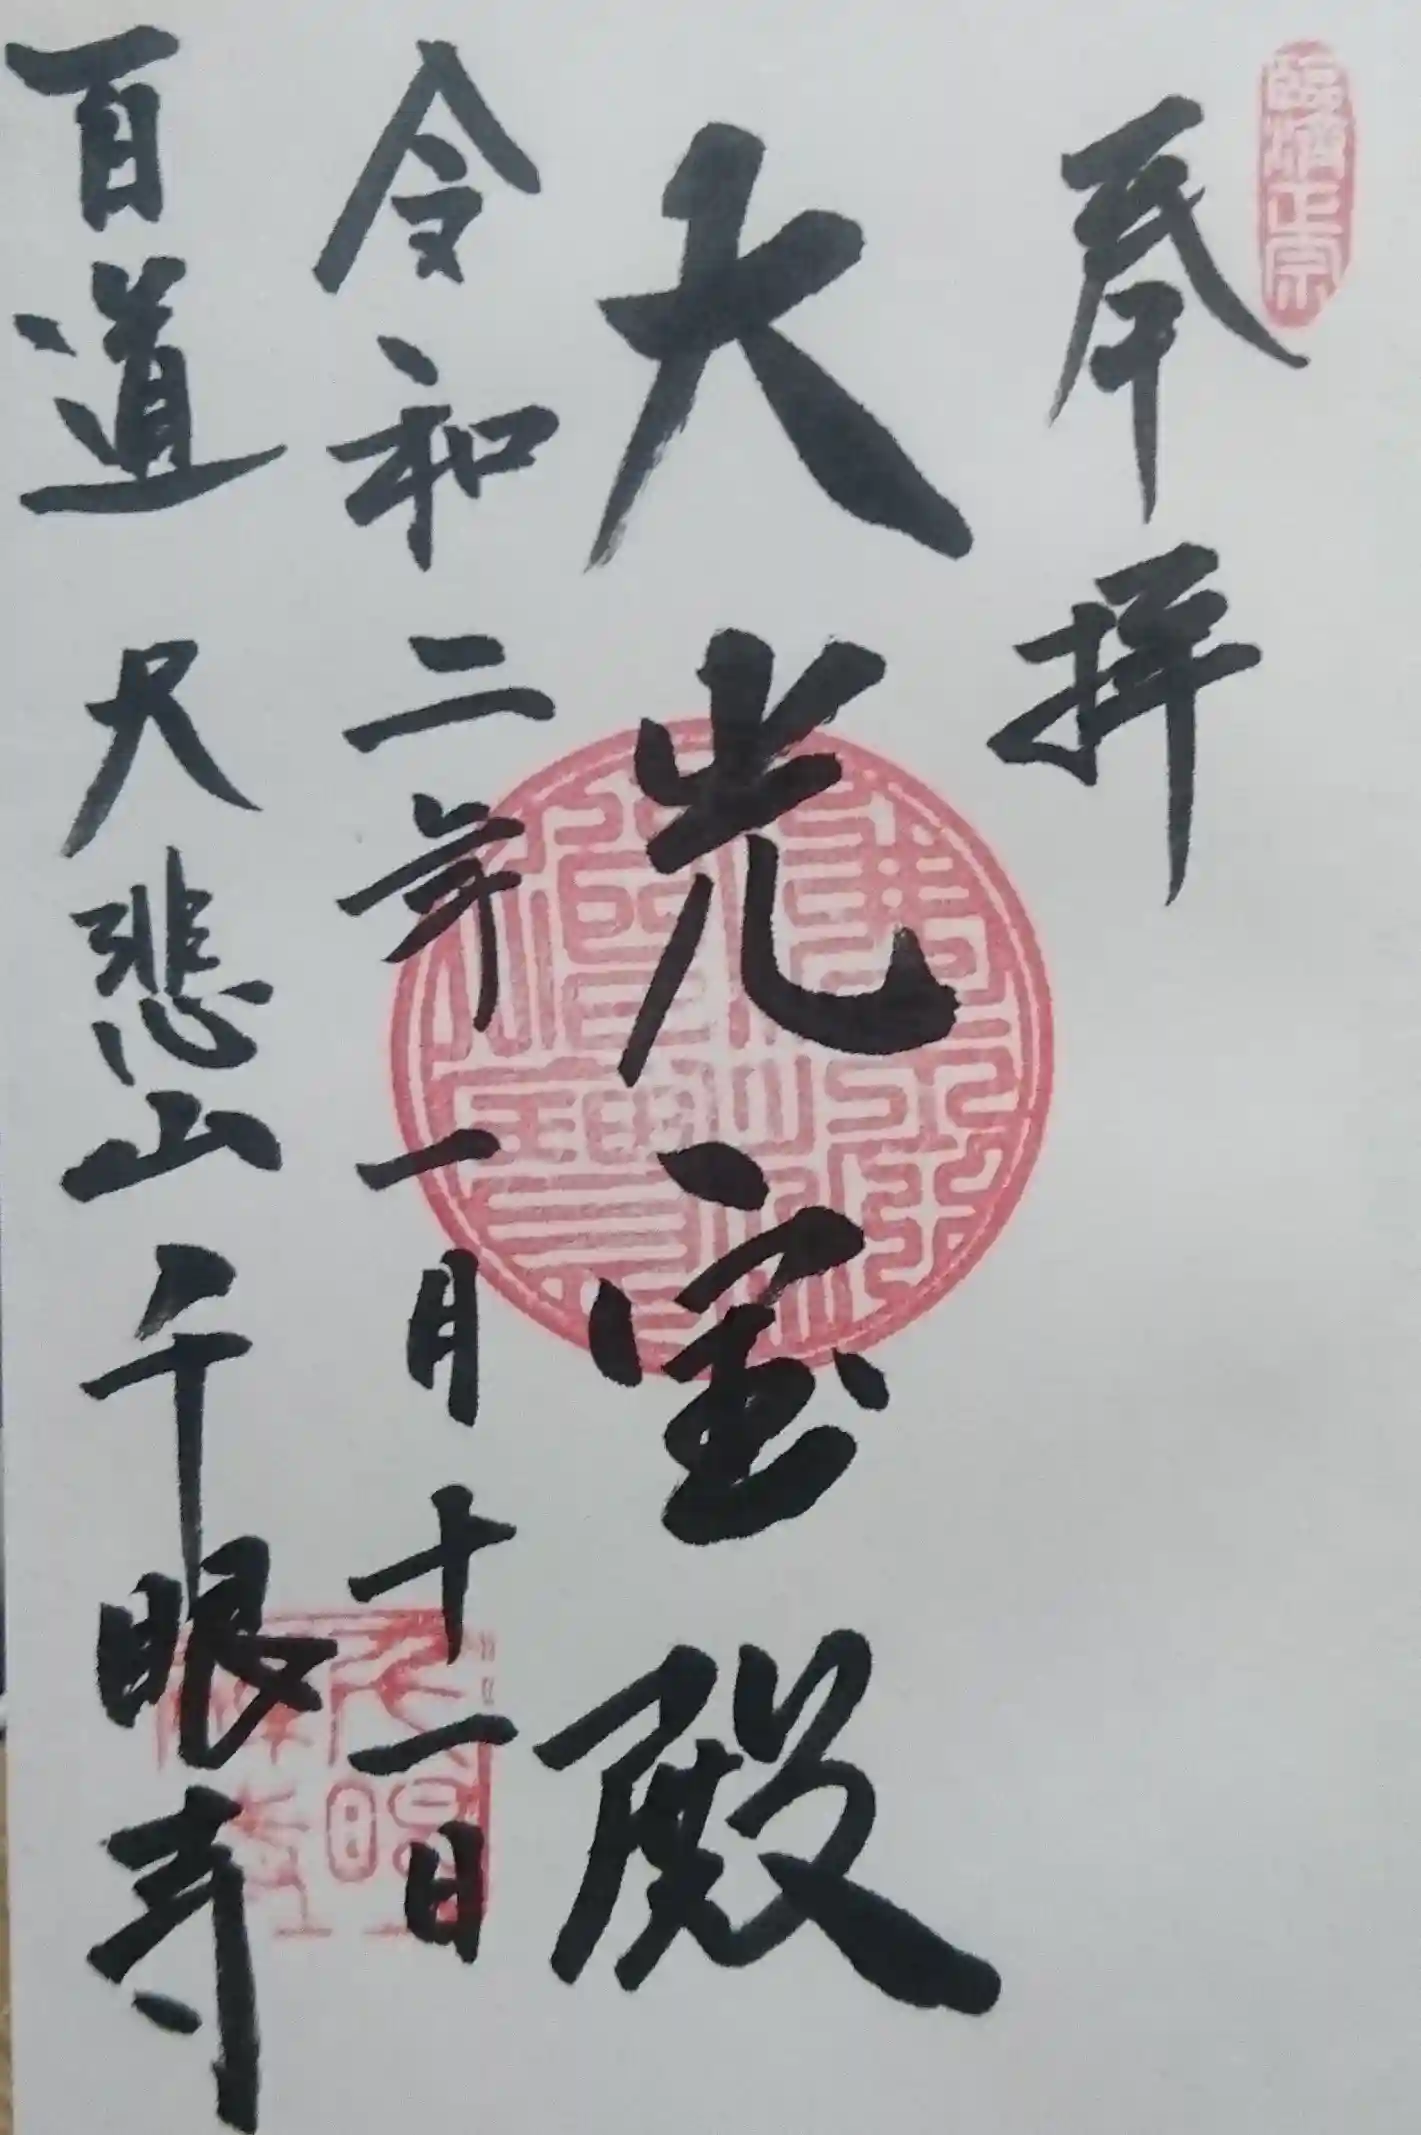 臨済正宗
奉拝
大光宝殿
令和二年一月十一日
百道 大悲山千眼寺